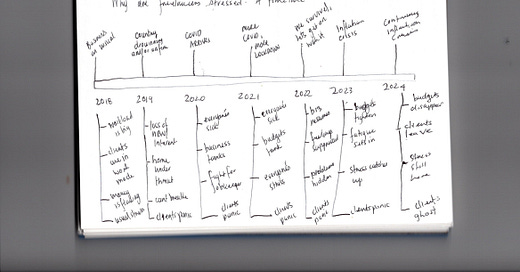 Why are freelancers stressed? A timeline
Business
as usual
Country
drowning
and/or on fire
COVID
ARRIVES
more
COVID,
more
lockdown
we survived,
let's get on
with it
Inflation
crisis
Continuing
inflation
concerns
2018
2019
2020
2021
2022
2023
2024
workload
is big
clients
are in
work
mode
money
is flowing
loss of
home
under
threat
can't breathe
clients panic
everyone
sick
business
tanks
fight for
clients
panic
everyone
sick
budgets
tank
everyone
clients
panic
big
resume
feelings
suppressed
problems
hidden
clients
panic
budgets
tighten
fatigue
sets in
stress catches
up
clients panic
budgets
disappear
clients
leave
stress
still
here
clients
ghost